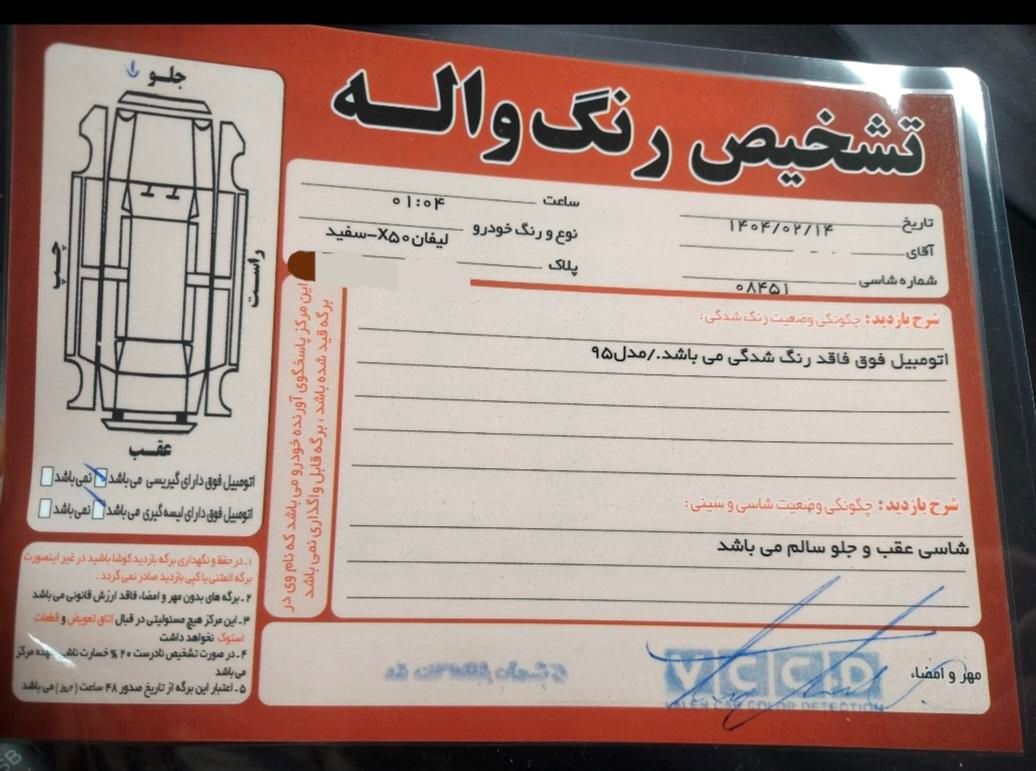 تشخیص رنگ واله
تاریخ ۱۴۰۴/۰۲/۱۴
ساعت ۰۱:۰۴
آقای
نوع و رنگ خودرو لیفان X۵۰-سفید
شماره شاسی ۰۸۴۵۱
پلاک
شرح بازدید: چگونگی وضعیت رنگ شدگی:
اتومبیل فوق فاقد رنگ شدگی می باشد./مدل۹۵
شرح بازدید: چگونگی وضعیت شاسی و سینی:
شاسی عقب و جلو سالم می باشد
مهر و امضاء
VCCD
VALEH CAR COLOR DETECTION
این مرکز پاسخگوی آورنده خودرو می باشد که نام وی در
برگه قید شده باشد، برگه قابل واگذاری نمی باشد
جلو
چپ
راست
عقب
اتومبیل فوق دارای گیریسی می باشد نمی باشد
اتومبیل فوق دارای لیسه گیری می باشد نمی باشد
۱ـ در حفظ و نگهداری برگه بازدید کوشا باشید در غیر اینصورت
برگه المثنی یا کپی بازدید صادر نمی گردد.
۲ـ برگه های بدون مهر و امضاء، فاقد ارزش قانونی می باشد
۳ـ این مرکز هیچ مسئولیتی در قبال اتاق تعویض و قطعات
استوک نخواهد داشت
۴ـ در صورت تشخیص نادرست ۲۰ % خسارت ناشی عهده مرکز
می باشد
۵ـ اعتبار این برگه از تاریخ صدور ۴۸ ساعت (۲روز) می باشد